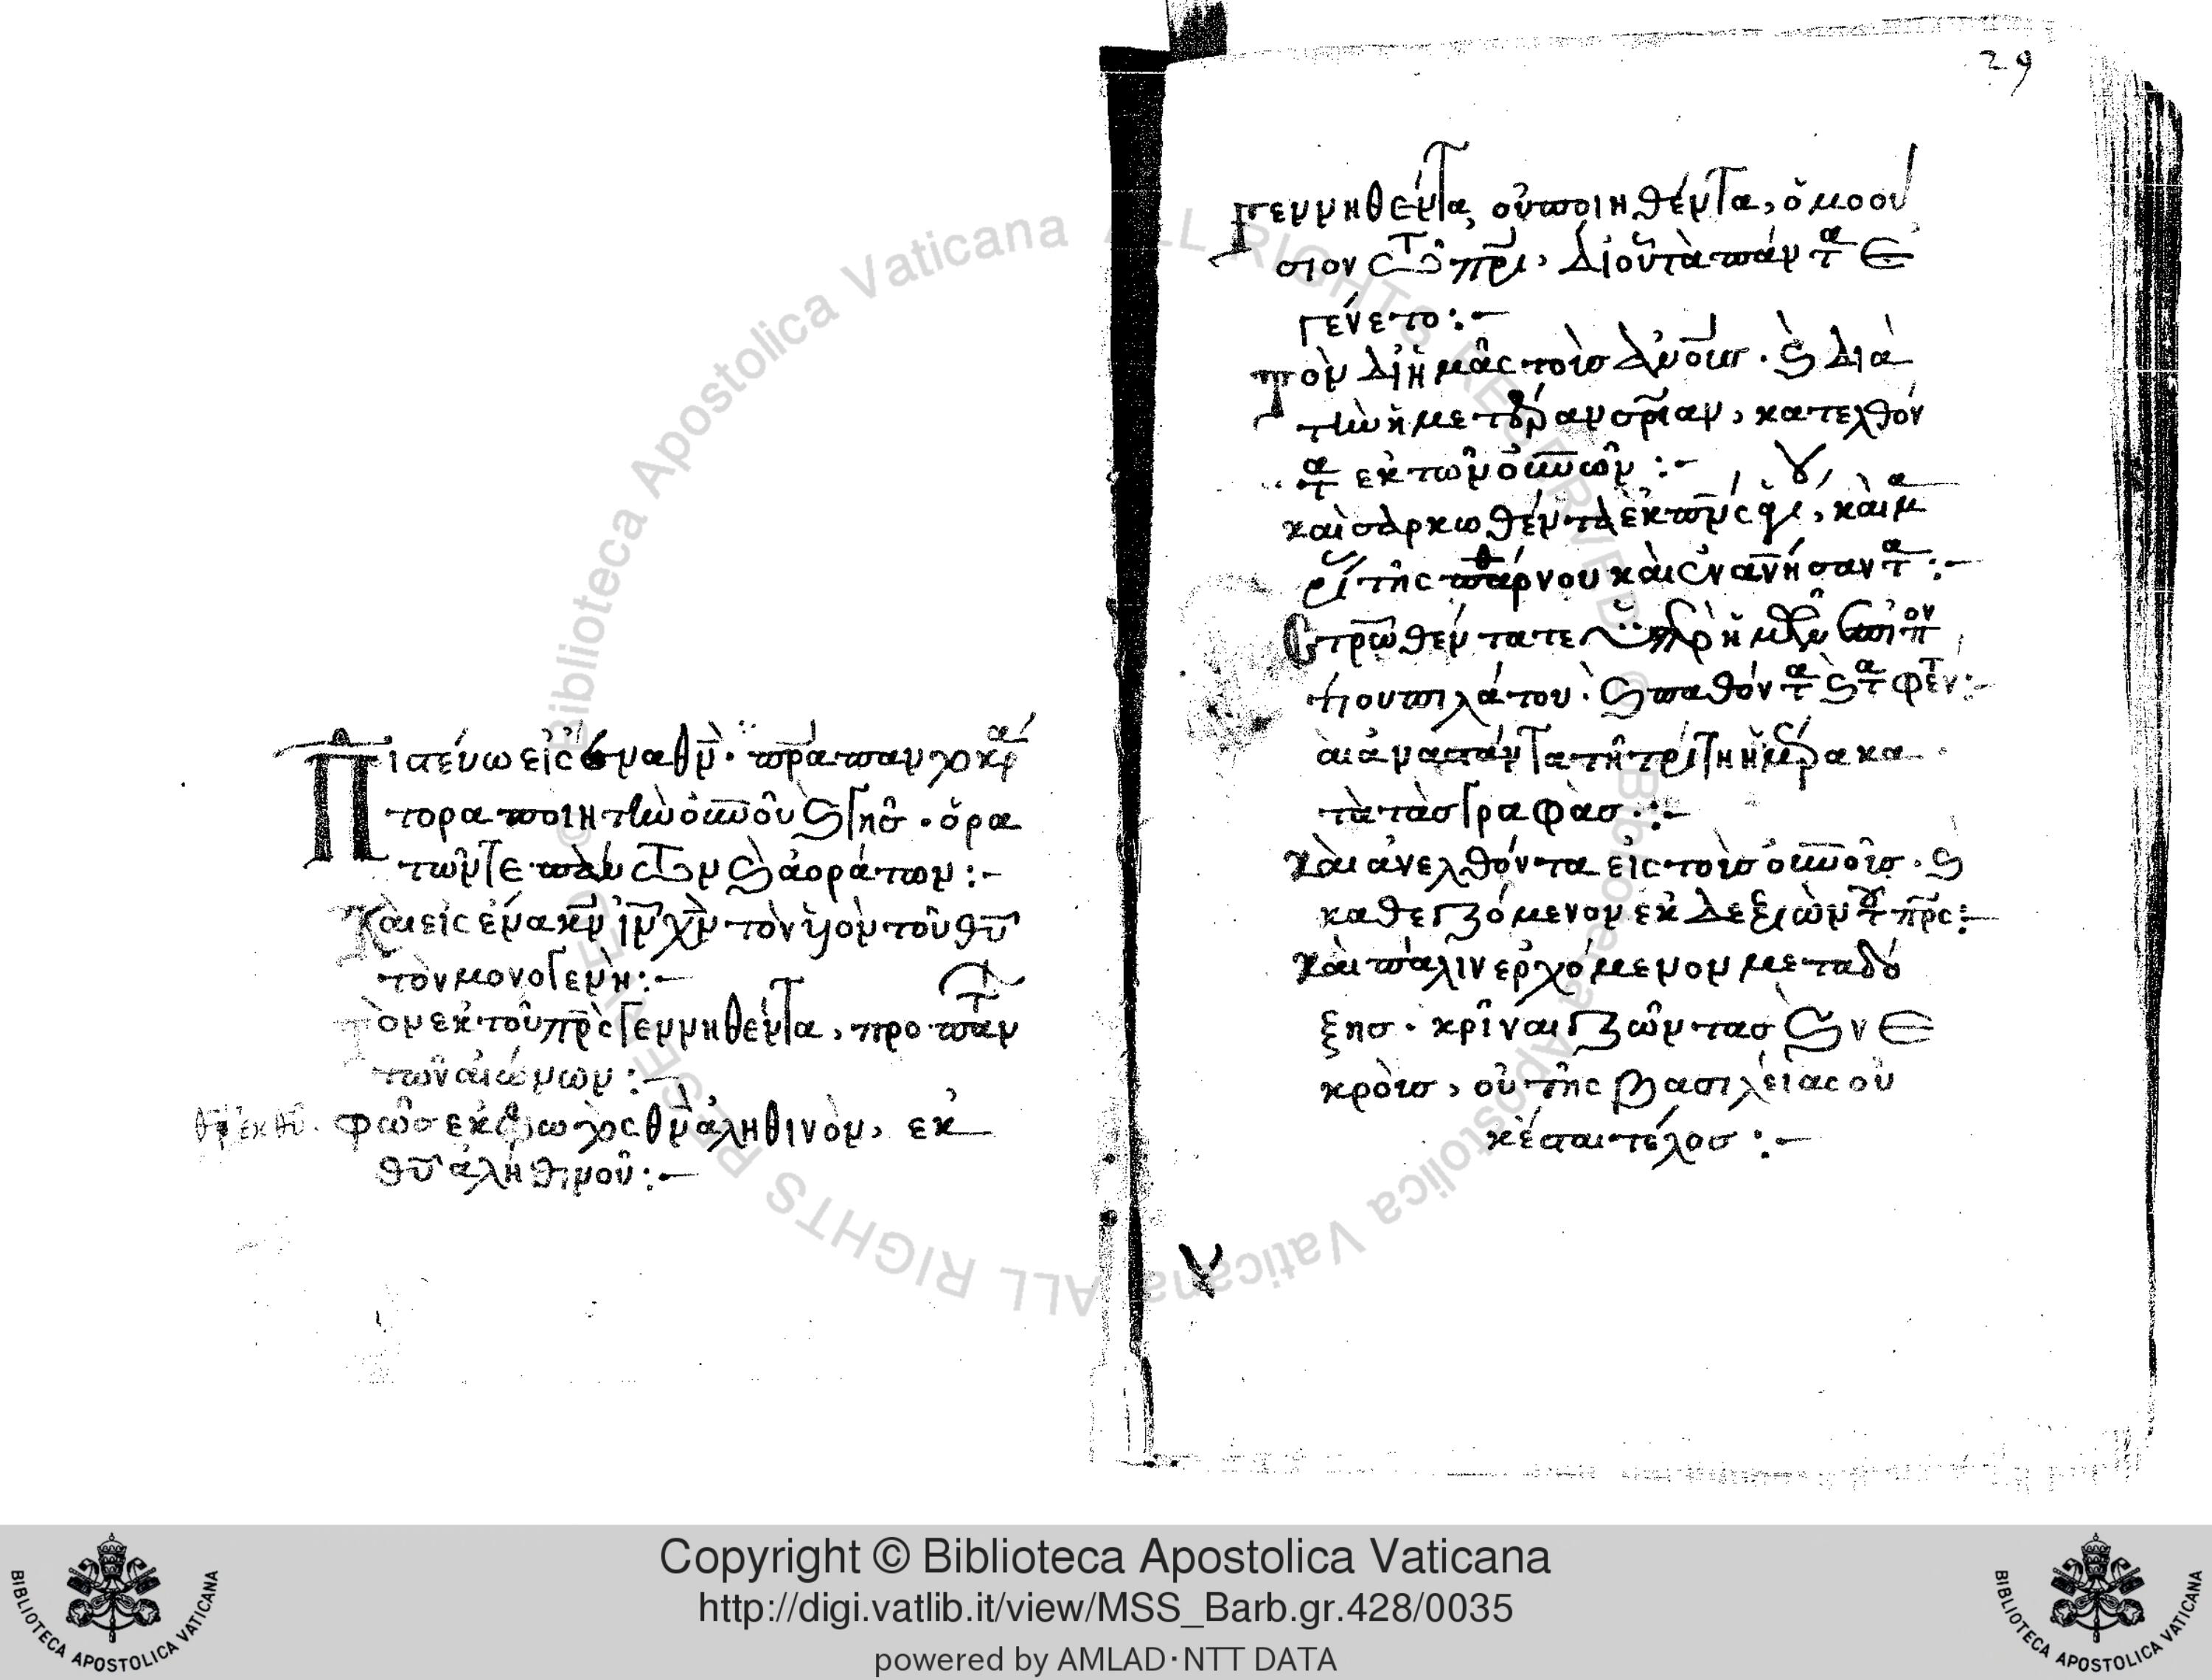 Πιστεύω εἰς ἕνα θν̅· πρ̅α παντοκρά
τορα ποιητὴν οὐνοῦ καὶ γῆσ· ὁρα
τῶν τε πάντων καὶ ἀοράτων:-
Καὶ εἰς ἕνα κν̅ ἰν̅ χν̅ τὸν ὑιὸν τοῦ θυ̅
τὸν μονογενῆ:-
Τὸν ἐκ τοῦ πρ̅ς γεννηθέντα, προ πάν
των αἰώνων:-
θν̅ ἐκ θυ̅· φῶσ ἐκ φωτὸς θν̅ ἀληθινὸν, ἐκ
θυ̅ ἀληθινοῦ:-
29
Γεννηθέντα, οὐ ποιηθέντα, ὅμοού
σιον τῶ πρι̅, δι οὗ τὰ πάντα ε
γένετο:-
Τὸν δι ἡμᾶς τοὺσ ἀνο̅υσ· καὶ διὰ
τὴν ἡμετέραν σρ̅ιαν, κατελθόν
τα εκ τῶν οὐνῶν:-
καὶ σαρκωθέντα ἐκ πν̅ς ἁγίου, καὶ μα
ρίας τῆς παρθένου καὶ ἐνανησαντα:-
Στρωθέντα τε ὑπὲρ ἡμῶν ἐπὶ πον
τίου πιλάτου· καὶ παθόντα καὶ ταφέντ:-
Καὶ ἀναστάντα τῆ τρίτη ἡμέρα κα
τὰ τὰσ γραφὰσ:-
Καὶ ἀνελθόντα εἰς τοὺσ οὐνοὺσ· καὶ
καθεζόμενον ἐκ δεξιῶν τοῦ πρ̅ς:-
Καὶ πάλιν ἐρχόμενον μετα δό
ξησ· κρῖναι ζῶντασ καὶ νε
κροὺσ, οὗ τῆς βασιλείας οὐ
κέσται τέλοσ:-
Copyright © Biblioteca Apostolica Vaticana
http://digi.vatlib.it/view/MSS_Barb.gr.428/0035
powered by AMLAD·NTT DATA
BIBLIOTECA APOSTOLICA VATICANA
BIBLIOTECA APOSTOLICA VATICANA
© Biblioteca Apostolica Vaticana ALL RIGHTS RESERVED © Biblioteca Apostolica Vaticana ALL RIGHTS RESERVED